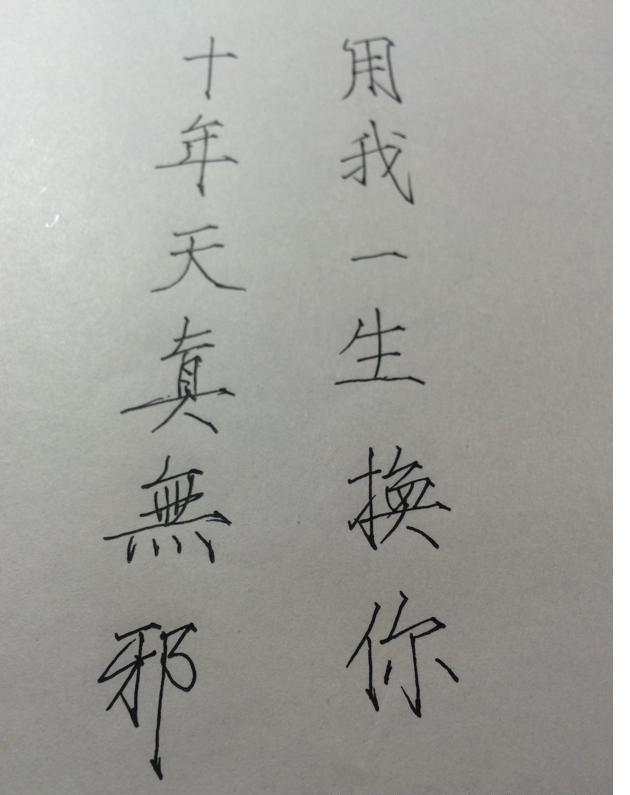 用我一生換你
十年天真無邪